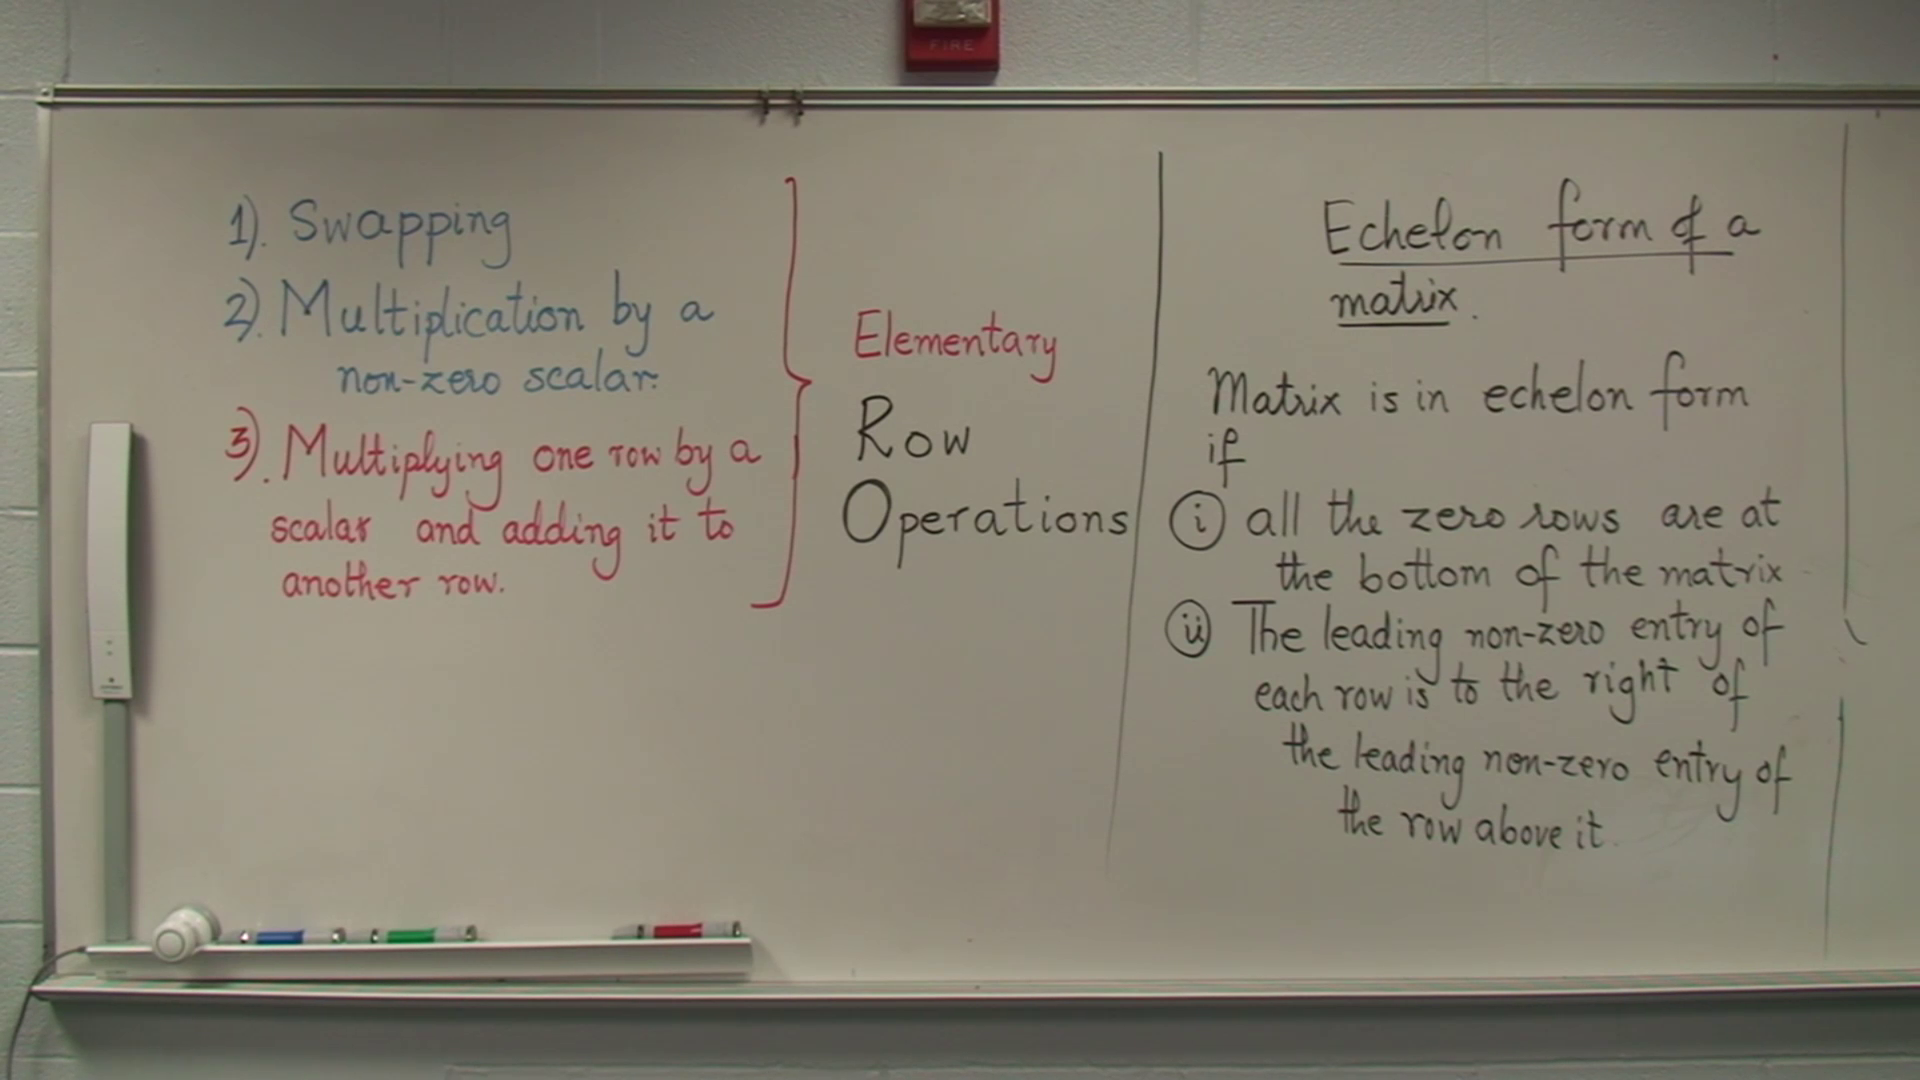 FIRE
1). Swapping
2). Multiplication by a
non-zero scalar.
3). Multiplying one row by a
scalar and adding it to
another row.
Elementary
Row
Operations
Echelon form of a
matrix.
Matrix is in echelon form
if
(i) all the zero rows are at
the bottom of the matrix
(ii) The leading non-zero entry of
each row is to the right of
the leading non-zero entry of
the row above it.